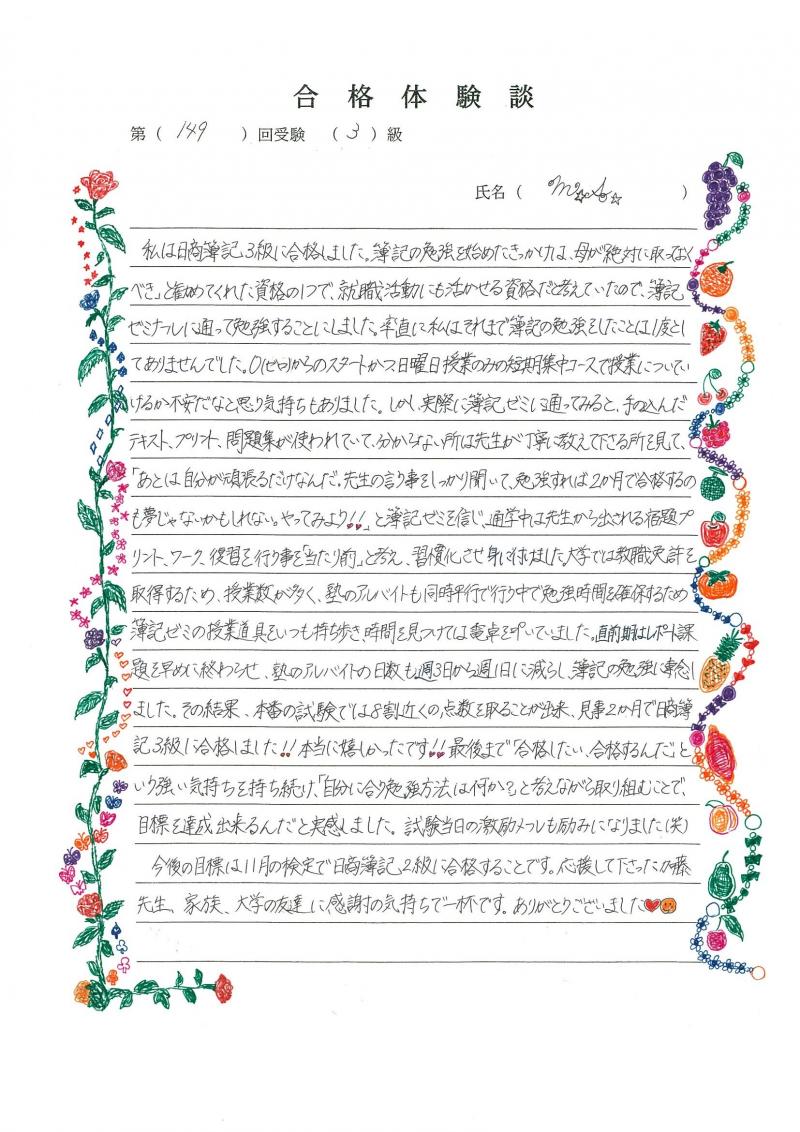 合格体験談
第（149）回受験（3）級
氏名（M☆S☆）
私は日商簿記3級に合格しました。簿記の勉強を始めたきっかけは、母が「絶対に取っなく
べき」と勧めてくれた資格の1つで、就職活動にも活かせる資格だと考えていたので、簿記
ゼミナールに通って勉強することにしました。率直に私はそれまで簿記の勉強をしたことは1度とし
てありませんでした。0(ゼロ)からのスタートかつ日曜日授業のみの短期集中コースで授業についてい
けるか不安だなと思う気持ちもありました。しかし、実際に簿記ゼミに通ってみると、手の込んだ
テキスト、プリント、問題集が使われていて、分からない所は先生が丁寧に教えて下さる所を見て、
「あとは自分が頑張るだけなんだ。先生の言う事をしっかり聞いて、勉強すれば2か月で合格するの
も夢じゃないかもしれない。やってみよう!!」と簿記ゼミを信じ、通学中は先生から出される宿題プ
リント、ワーク、復習を行う事を「当たり前」と考え、習慣化させ身に付けました。大学では教職免許を
取得するため、授業数が多く、塾のアルバイトも同時平行で行う中で勉強時間を確保するため
簿記ゼミの授業道具をいつも持ち歩き、時間を見つけては電卓を叩いていました。直前期はレポート課
題を早めに終わらせ、塾のアルバイトの日数も週3日から週1日に減らし、簿記の勉強に専念し
ました。その結果、本番の試験では8割近くの点数を取ることが出来、見事2か月で日商簿
記3級に合格しました!!本当に嬉しかったです!!最後まで「合格したい、合格するんだ」と
いう強い気持ちを持ち続け、「自分に合う勉強方法は何か?」と考えながら取り組むことで、
目標を達成出来るんだと実感しました。試験当日の激励メールも励みになりました(笑)
今後の目標は11月の検定で日商簿記2級に合格することです。応援して下さった加藤
先生、家族、大学の友達に感謝の気持ちで一杯です。ありがとうございました